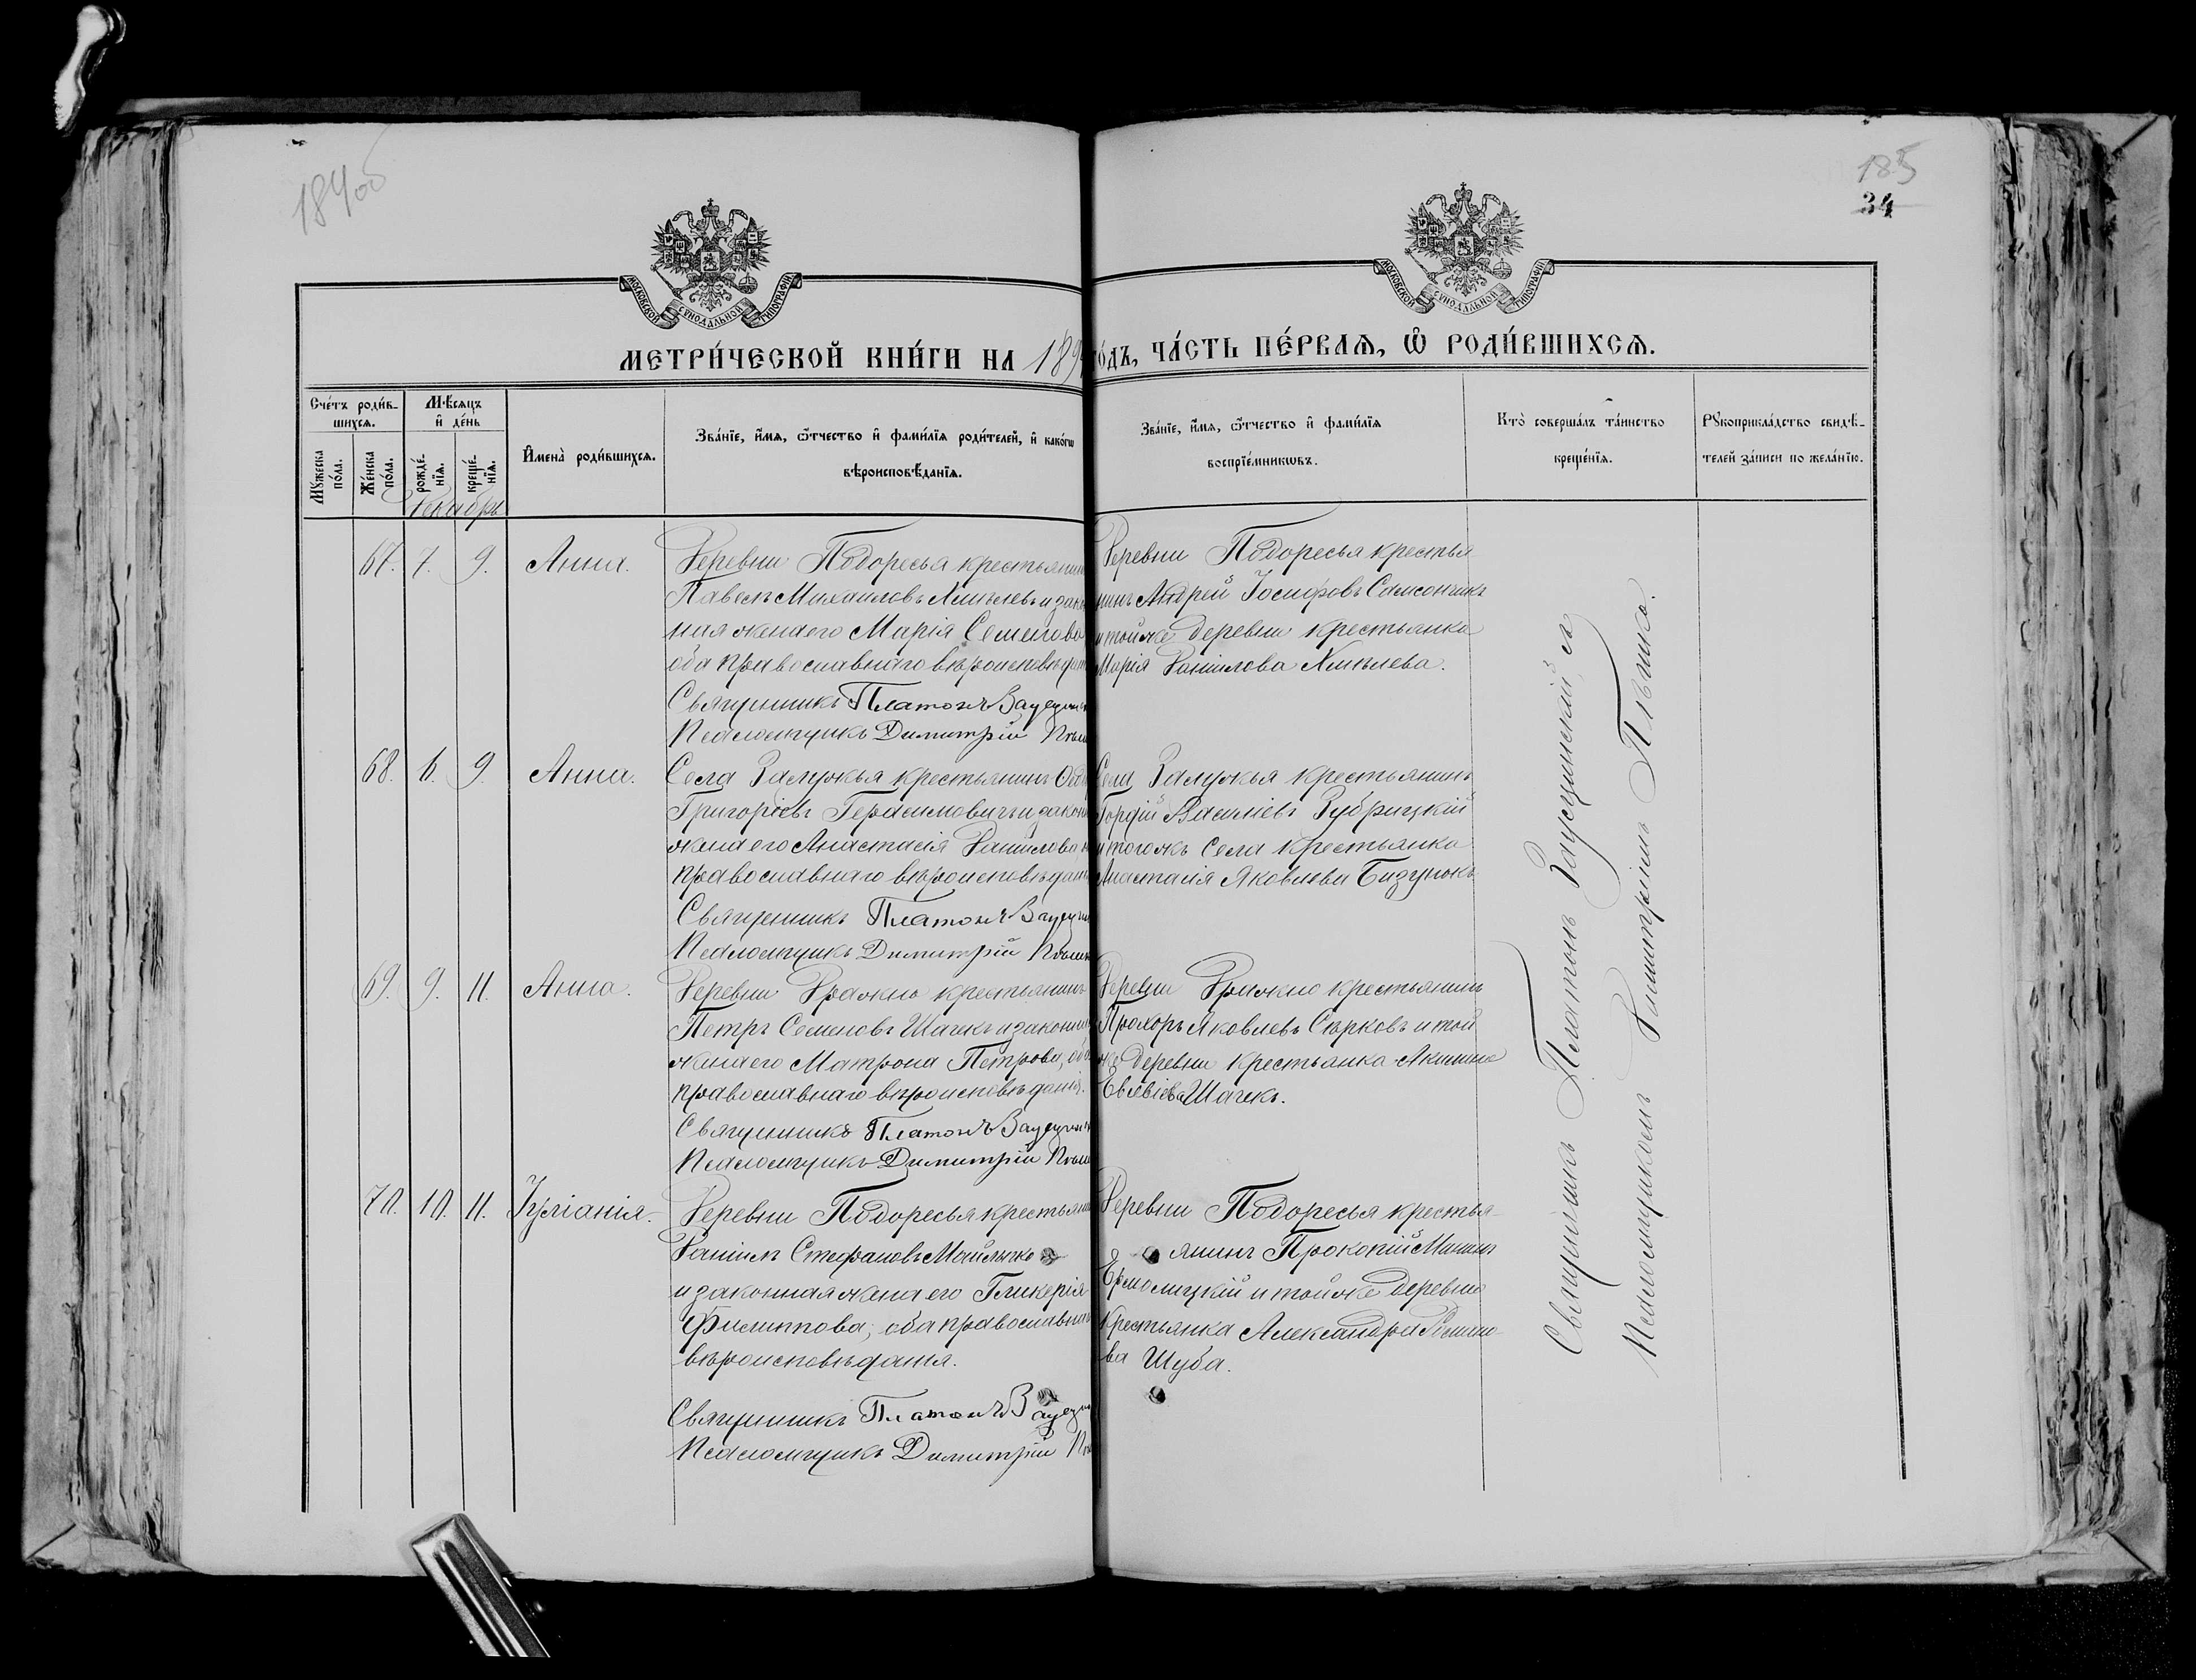 184об
185
34
МОСКОВСКОЙ СѴНОДАЛЬНОЙ ТИПОГРАФІИ
МОСКОВСКОЙ СѴНОДАЛЬНОЙ ТИПОГРАФІИ
МЕТРИ́ЧЕСКОЙ КНИ́ГИ НА 189
О́ДЪ, ЧА́СТЬ ПЕ́РВАѦ, Ѡ҆ РОДИ́ВШИХСѦ.
Сче́тъ роди́в-
шихсѧ.
Мꙋ́жеска по́ла.
Же́нска по́ла.
Мѣ́сѧцъ
и҆ де́нь
рожде́-нїѧ.
креще́-нїѧ.
И҆мена̀ роди́вшихсѧ.
Зва́нїе, и҆́мѧ, ѻ҆́тчество и҆ фами́лїѧ роди́телей, и҆ како́гѡ
вѣроисповѣ́данїѧ.
Зва́нїе, и҆́мѧ, ѻ҆́тчество и҆ фами́лїѧ
воспрїе́мникѡвъ.
Кто̀ соверша́лъ та́инство
креще́нїѧ.
Рꙋкоприкла́дство свидѣ́-
телей за́писи по жела́нїю.
Декабрь
67. 7. 9. Анна.
Деревни Подоресья крестьянин
Павелъ Михаиловъ Хмылевъ и закон
ная жена его Марія Семенова
оба православнаго вѣроисповѣдан
Священникъ Платонъ Заусцин
Псаломщикъ Димитрій Пѣш
Деревни Подоресья крестья
нинъ Андрей Іосифовъ Самсончикъ
и той же деревни крестьянка
Марія Данилова Хмылева.
68. 6. 9. Анна.
Села Залужья крестьянинъ
Григоріевъ Герасимовичъ и закон
жена его Анастасія Данилова
православнаго вѣроисповѣдан
Священникъ Платонъ Заусцин
Псаломщикъ Димитрій Пѣшк
Села Залужья крестьянинъ
Гордій Василіевъ Зубрицкій
и тогожъ села крестьянка
Анастасія Яковлева Бизунокъ
69. 9. 11. Анна.
Деревни Дражно крестьянинъ
Петръ Семеновъ Шачекъ и законн
жена его Матрона Петрова, оба
православнаго вѣроисповѣданія.
Священникъ Платонъ Заусцин
Псаломщикъ Димитрій Пѣш
Деревни Дражно крестьянинъ
Прохоръ Яковлевъ Сѣрковъ и той
же деревни крестьянка Акилина
Шачекъ.
70. 10. 11. Іуліанія.
Деревни Подоресья крестьян
Даніилъ Стефановъ
и законная жена его Гликерія
Филиппова, оба православнаг
вѣроисповѣданія.
Священникъ Платонъ Заусцин
Псаломщикъ Димитрій Пѣ
Деревни Подоресья крестья-
янинъ Прокопій
Ермолицкій и той же деревни
крестьянка Александра Романо-
ва Шуба.
Священникъ Платонъ Заусцинскій, съ
Псаломщикомъ Димитріемъ